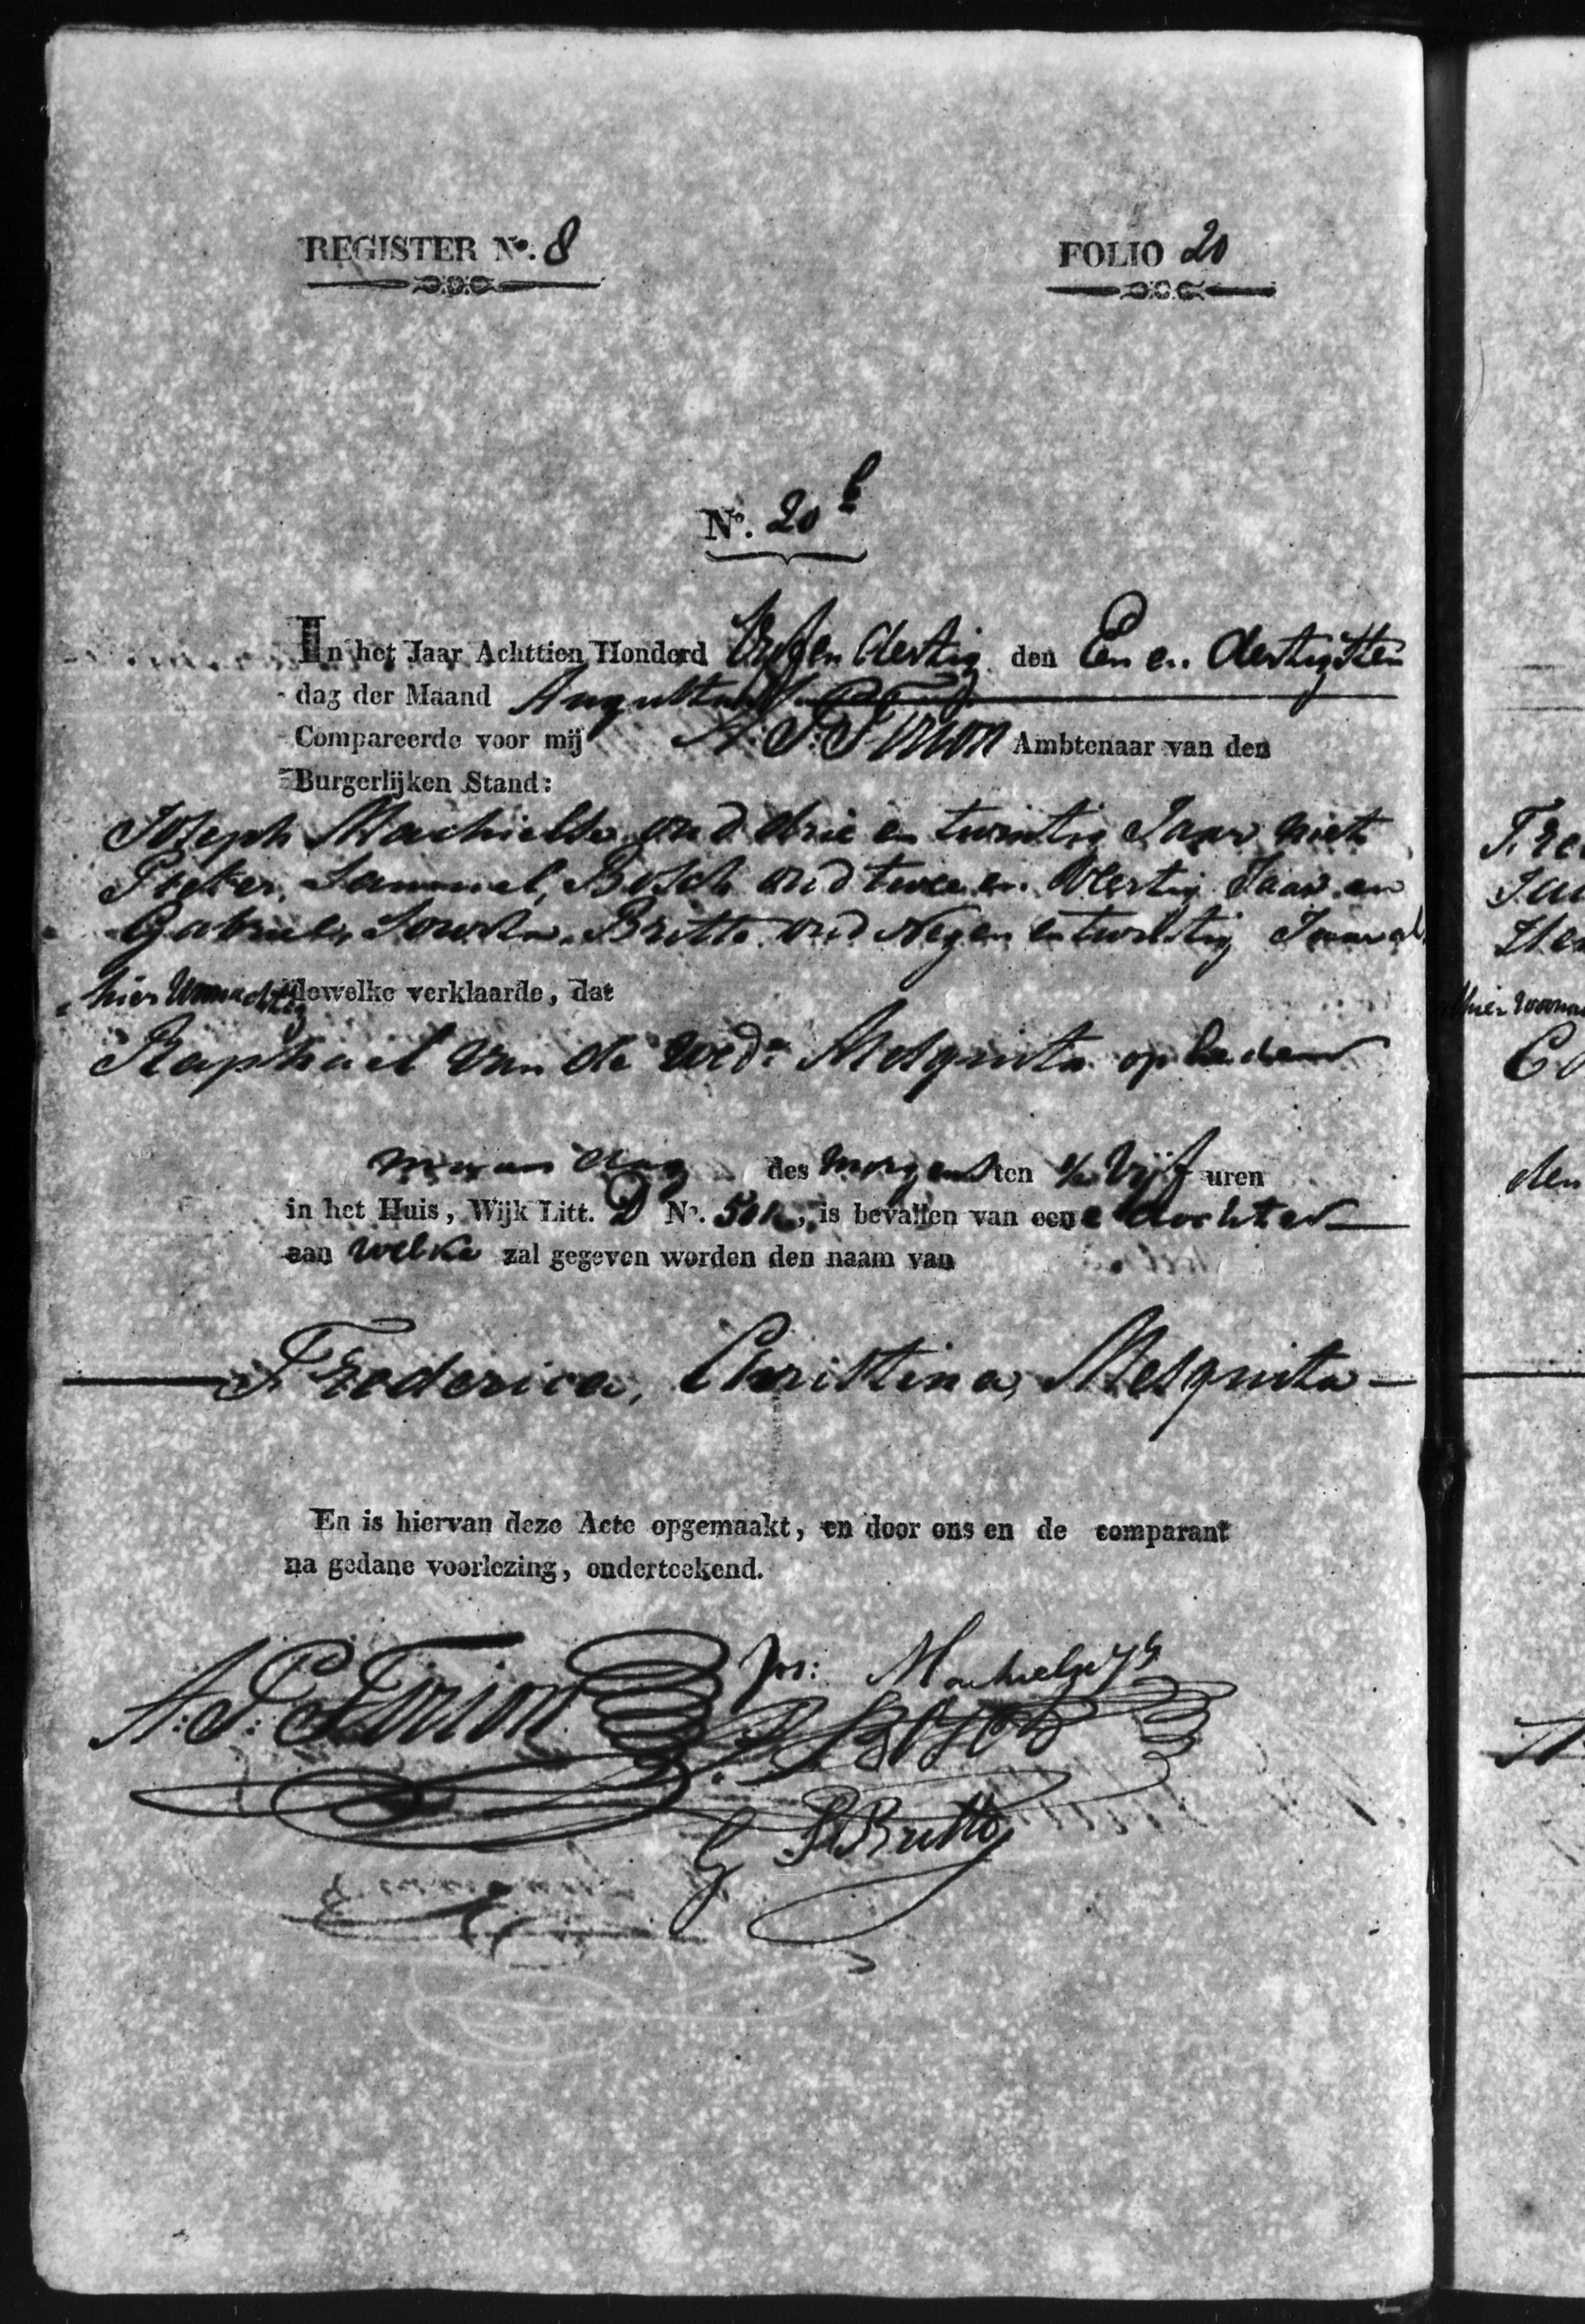 REGISTER No. 8
FOLIO 20
No. 20 b
In het Jaar Achttien Honderd Vijf en dertig den Een en dertigsten
dag der Maand Augustus
Compareerde voor mij A: P: Forion Ambtenaar van den
Burgerlijken Stand:
Joseph Machielse oud drie en twintig Jaar met
Pieter, Sammuel, Bosch oud twee en Veertig Jaar en
Gabriel, Britto oud Negen en twintig Jaar al
hier Woonachtig dewelke verklaarde, dat
Raphael van de Wede Mesquita op heden
maandag des morgens ten 1/2 Vijf uren
in het Huis, Wijk Litt. D No. is bevallen van eene dochter
aan welke zal gegeven worden den naam van
Frederica, Christina, Mesquita
En is hiervan deze Acte opgemaakt, en door ons en de comparant
na gedane voorlezing, onderteekend.
A: P: Forion Jos: Machielse
P. S. Bosch
G S Britto